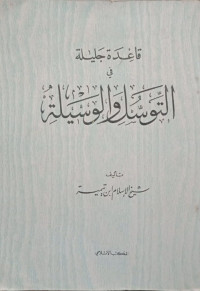 قاعدة جليلة
في
التوسل والوسيلة
تأليف
شيخ الإسلام ابن تيمية
المكتب الإسلامي